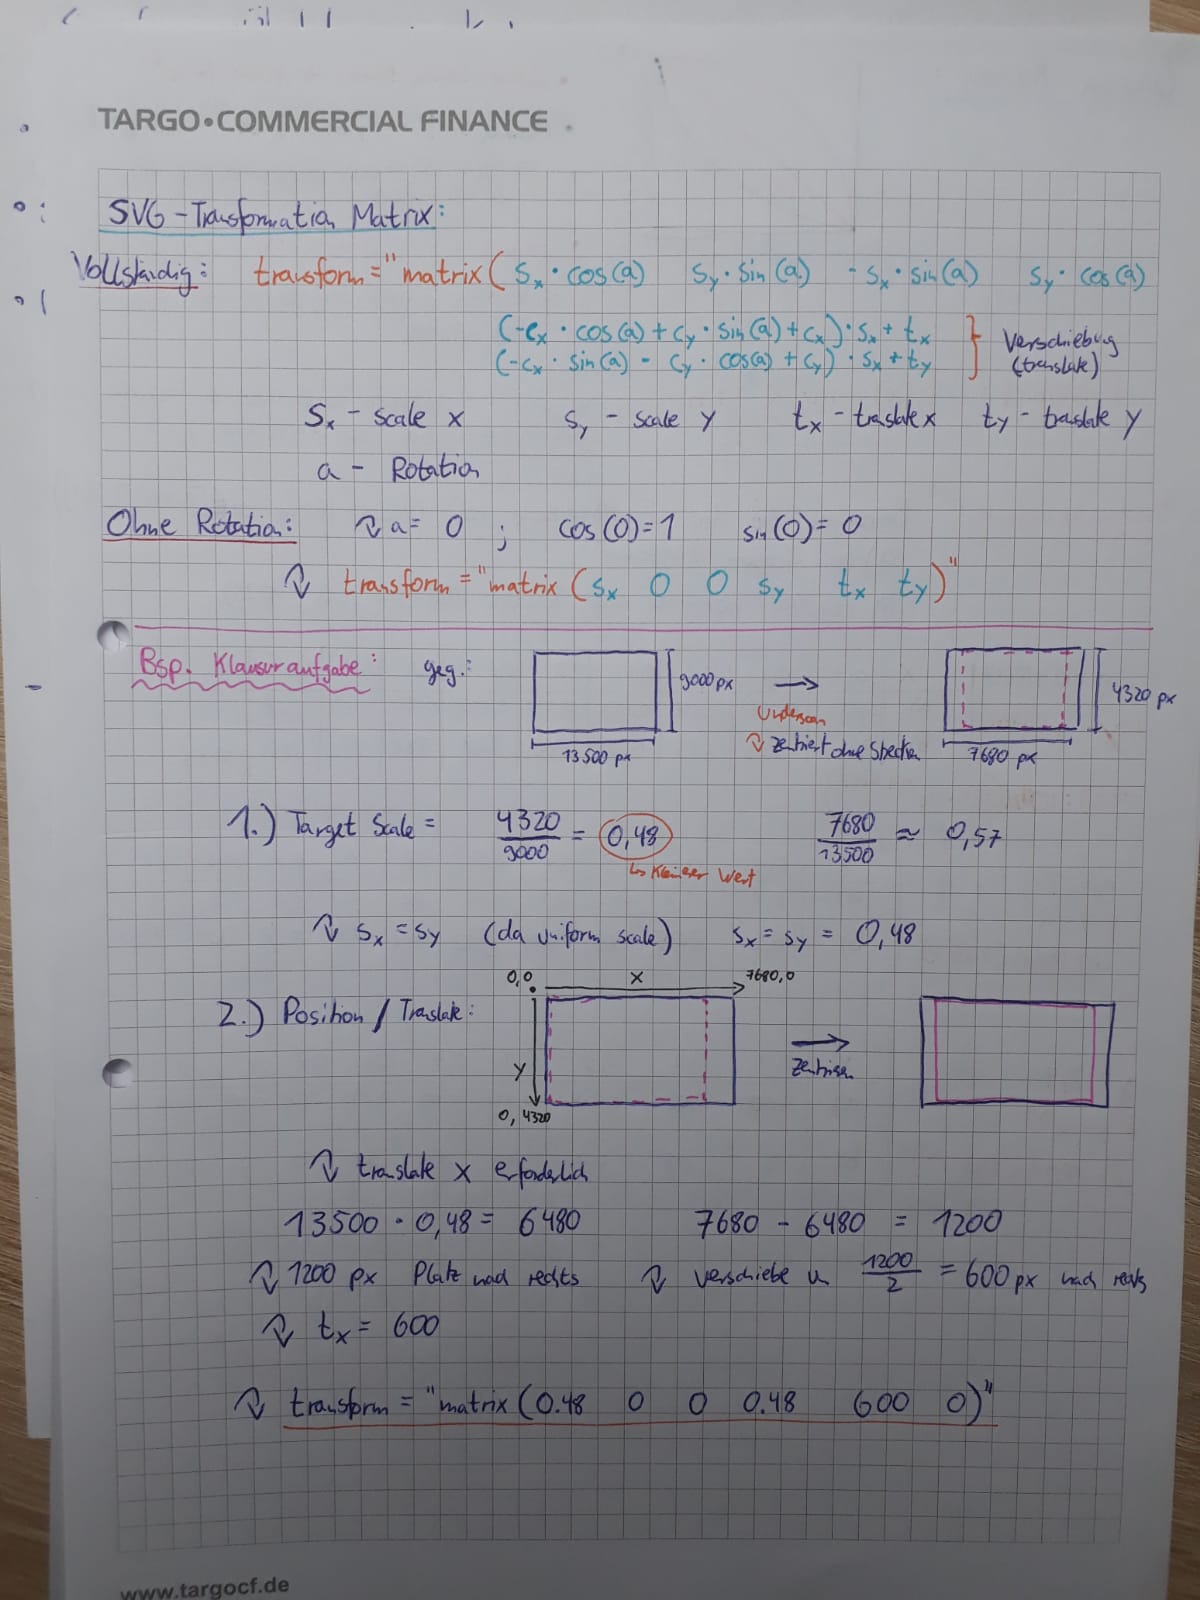 TARGO•COMMERCIAL FINANCE
SVG-Transformation Matrix:
Vollständig: transform="matrix(sx · cos(a) sy · sin(a) -sx · sin(a) sy · cos(a)
(-cx · cos(a) + cy · sin(a) + cx) · sx + tx
(-cx · sin(a) - cy · cos(a) + cy) · sx + ty
Verschiebung
(translate)
sx - scale x sy - scale y tx - traslate x ty - traslate y
a - Rotation
Ohne Rotation: a = 0 ; cos(0)=1 sin(0)=0
transform="matrix(sx 0 0 sy tx ty)"
Bsp. Klausuraufgabe: geg.:
9000 px
13500 px
Underscan
zentriert ohne Strecken
4320 px
7680 px
1.) Target Scale = 4320/9000 = 0,48 7680/13500 ≈ 0,57
↳ kleinerer Wert
sx = sy (da uniform scale) sx = sy = 0,48
0,0 x 7680,0
2.) Position / Translate:
y
0, 4320
zentrieren
translate x erforderlich
13500 · 0,48 = 6480 7680 - 6480 = 1200
1200 px Platz nach rechts verschiebe um 1200/2 = 600 px nach rechts
tx = 600
transform = "matrix(0.48 0 0 0.48 600 0)"
www.targocf.de